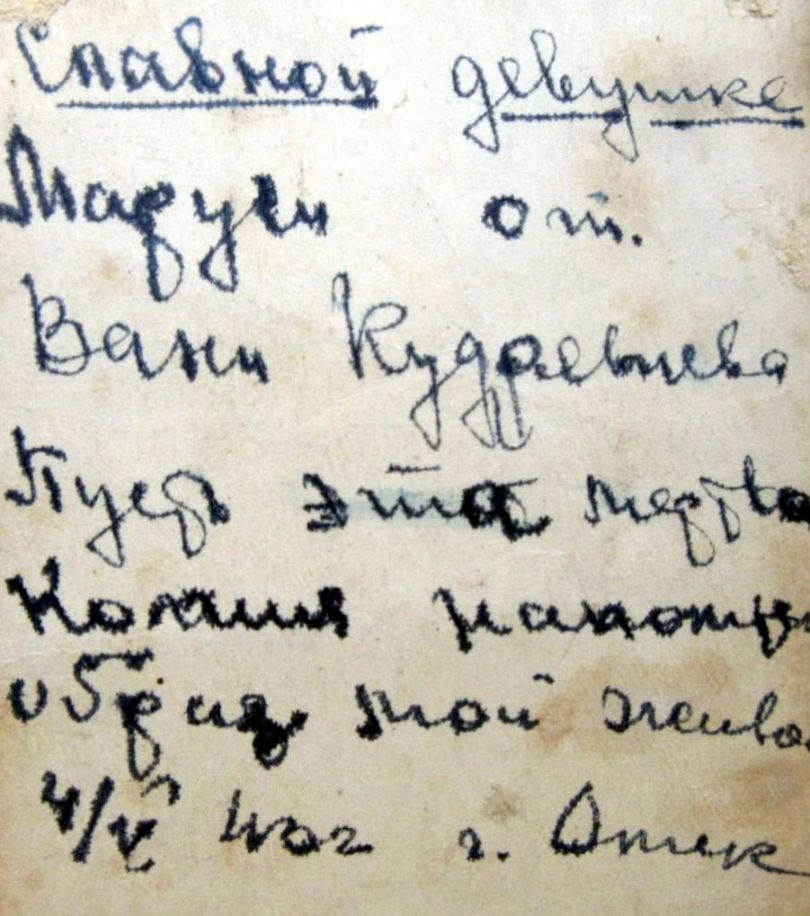 Славной девушке
Маруси от.
Вани Кудревцева
Пусть эта мертва
Копия напомн
образ мой живо
4/V 40г г. Омск